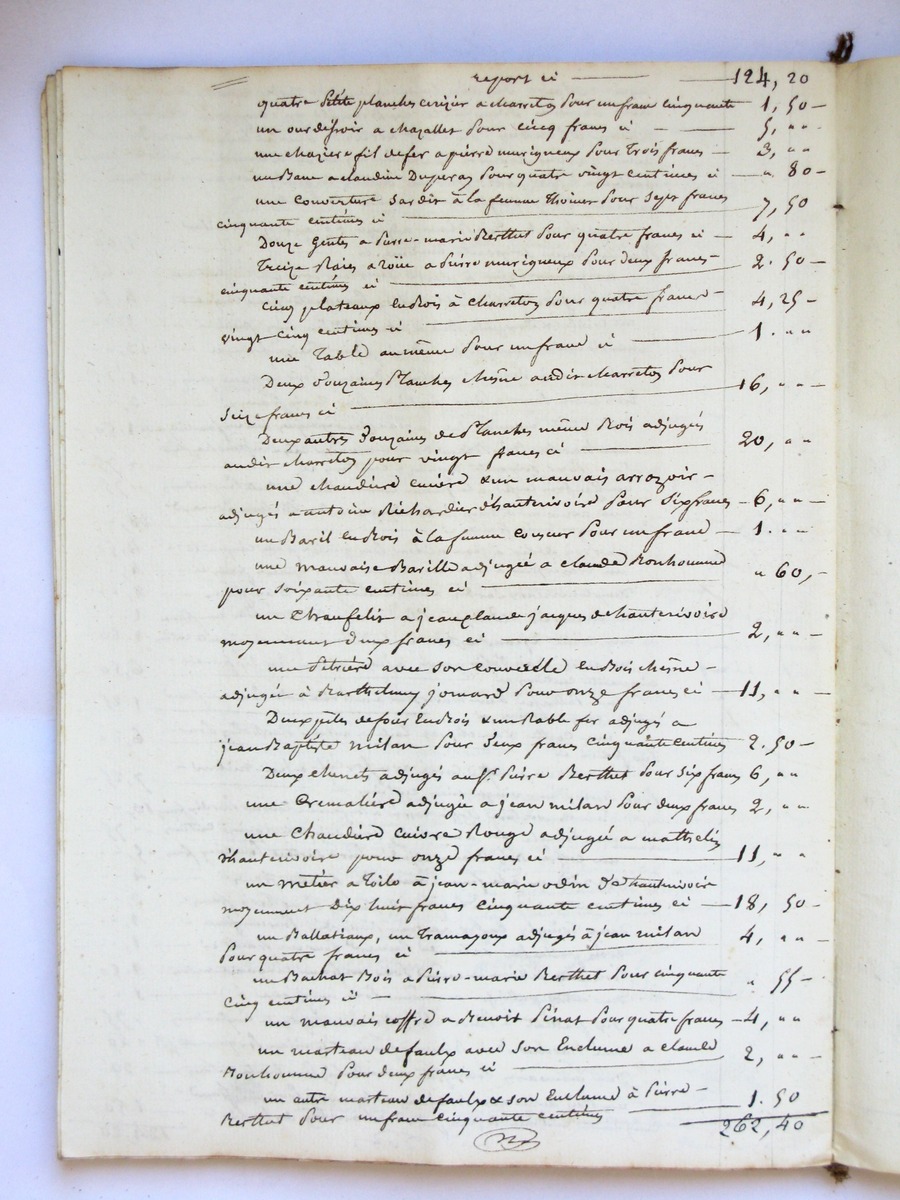 report ci 124, 20
quatre petite planches cerizier a charreton pour un franc cinquante 1, 50
un ourdissoir a chazallet pour cincq francs ci 5, " "
une chaziere fil de fer a pierre murigneux pour trois francs 3, " "
un Banc a claudine Duperay pour quatre vingt centimes ci " 80
une couverture sardit à la femme thoinet pour sept francs
cinquante centimes ci 7, 50
Douze gentes a pierre-marie Berthet pour quatre francs ci 4, " "
Treize Raies a roüe a pierre murigneux pour deux francs
cinquante centimes ci 2. 50
cinq plateaux en Bois à charreton pour quatre francs
vingt cinq centimes ci 4, 25
une Table au même pour un franc ci 1. " "
Deux Douzaines Planches chesne audit charreton pour
seize francs ci 16, " "
Deux autres Douzaines de Planches même Bois adjugés
audit charreton pour vingt francs ci 20, " "
une chaudiere cuivre & un mauvais arrozoir
adjugés a antoine Richardier d'hauterivoire pour six francs 6, " "
un Baril en Bois à la femme pour un franc 1. " "
une mauvaise Barille adjugée a claude Bonhomme
pour soixante centimes ci " 60,
un Chaufelit a jean claude jacques de hauterivoire
moyennant deux francs ci 2, " "
une Petriere avec son couvercle en Bois chesne
adjugée à Barthelemy jomard pour onze francs ci 11, " "
Deux pelles de four en Bois & un Rable fer adjugés a
jean Baptiste milan pour deux francs cinquante centimes 2. 50
Deux chenets adjugés au sr. pierre Berthet pour six francs 6, " "
une Cremaliere adjugée a jean milan pour deux francs 2, " "
une Chaudiere cuivre Rouge adjugée a mathelin
d'hauterivoire pour onze francs ci 11, " "
un métier a Toile à jean-marie odin d'hauterivoire
moyennant Dix huit francs cinquante centimes ci 18, 50
un Ballatiaux, un Tramayoux adjugés à jean milan
pour quatre francs ci 4, " "
un Bachat Bois a pierre-marie Berthet pour cinquante
cinq centimes ci " 55
un mauvais coffre a Benoit Pinat pour quatre francs 4, " "
un marteau de faulx avec son Enclume a claude
Bonhomme pour deux francs ci 2, " "
un autre marteau de faulx & son Enclume à pierre
Berthet pour un franc cinquante centimes 1. 50
262, 40